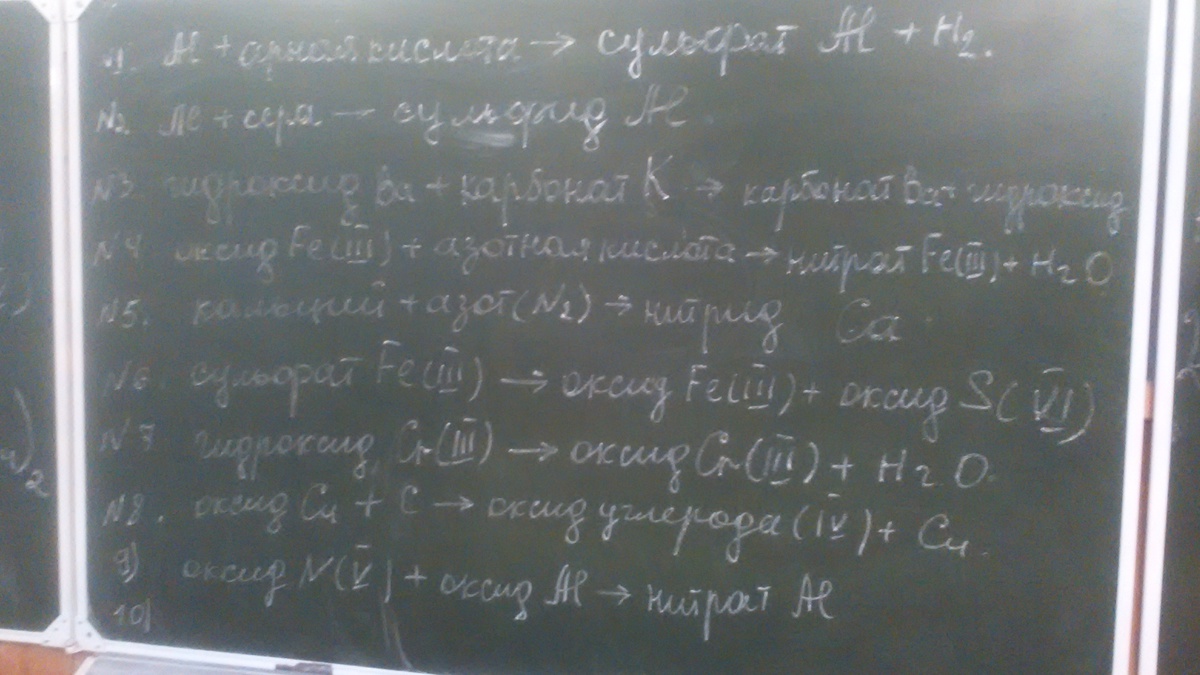 №1. Al + серная кислота → сульфат Al + H₂.
№2 Al + сера → сульфид Al.
№3 гидроксид Ba + карбонат K → карбонат Ba + гидроксид
№4 оксид Fe(III) + азотная кислота → нитрат Fe(III) + H₂O
№5. кальций + азот (N₂) → нитрид Ca
№6. сульфат Fe(III) → оксид Fe(III) + оксид S(VI)
№7 гидроксид Cr(III) → оксид Cr(III) + H₂O.
№8. оксид Cu + C → оксид углерода (IV) + Cu.
9) оксид N(V) + оксид Al → нитрат Al
10)